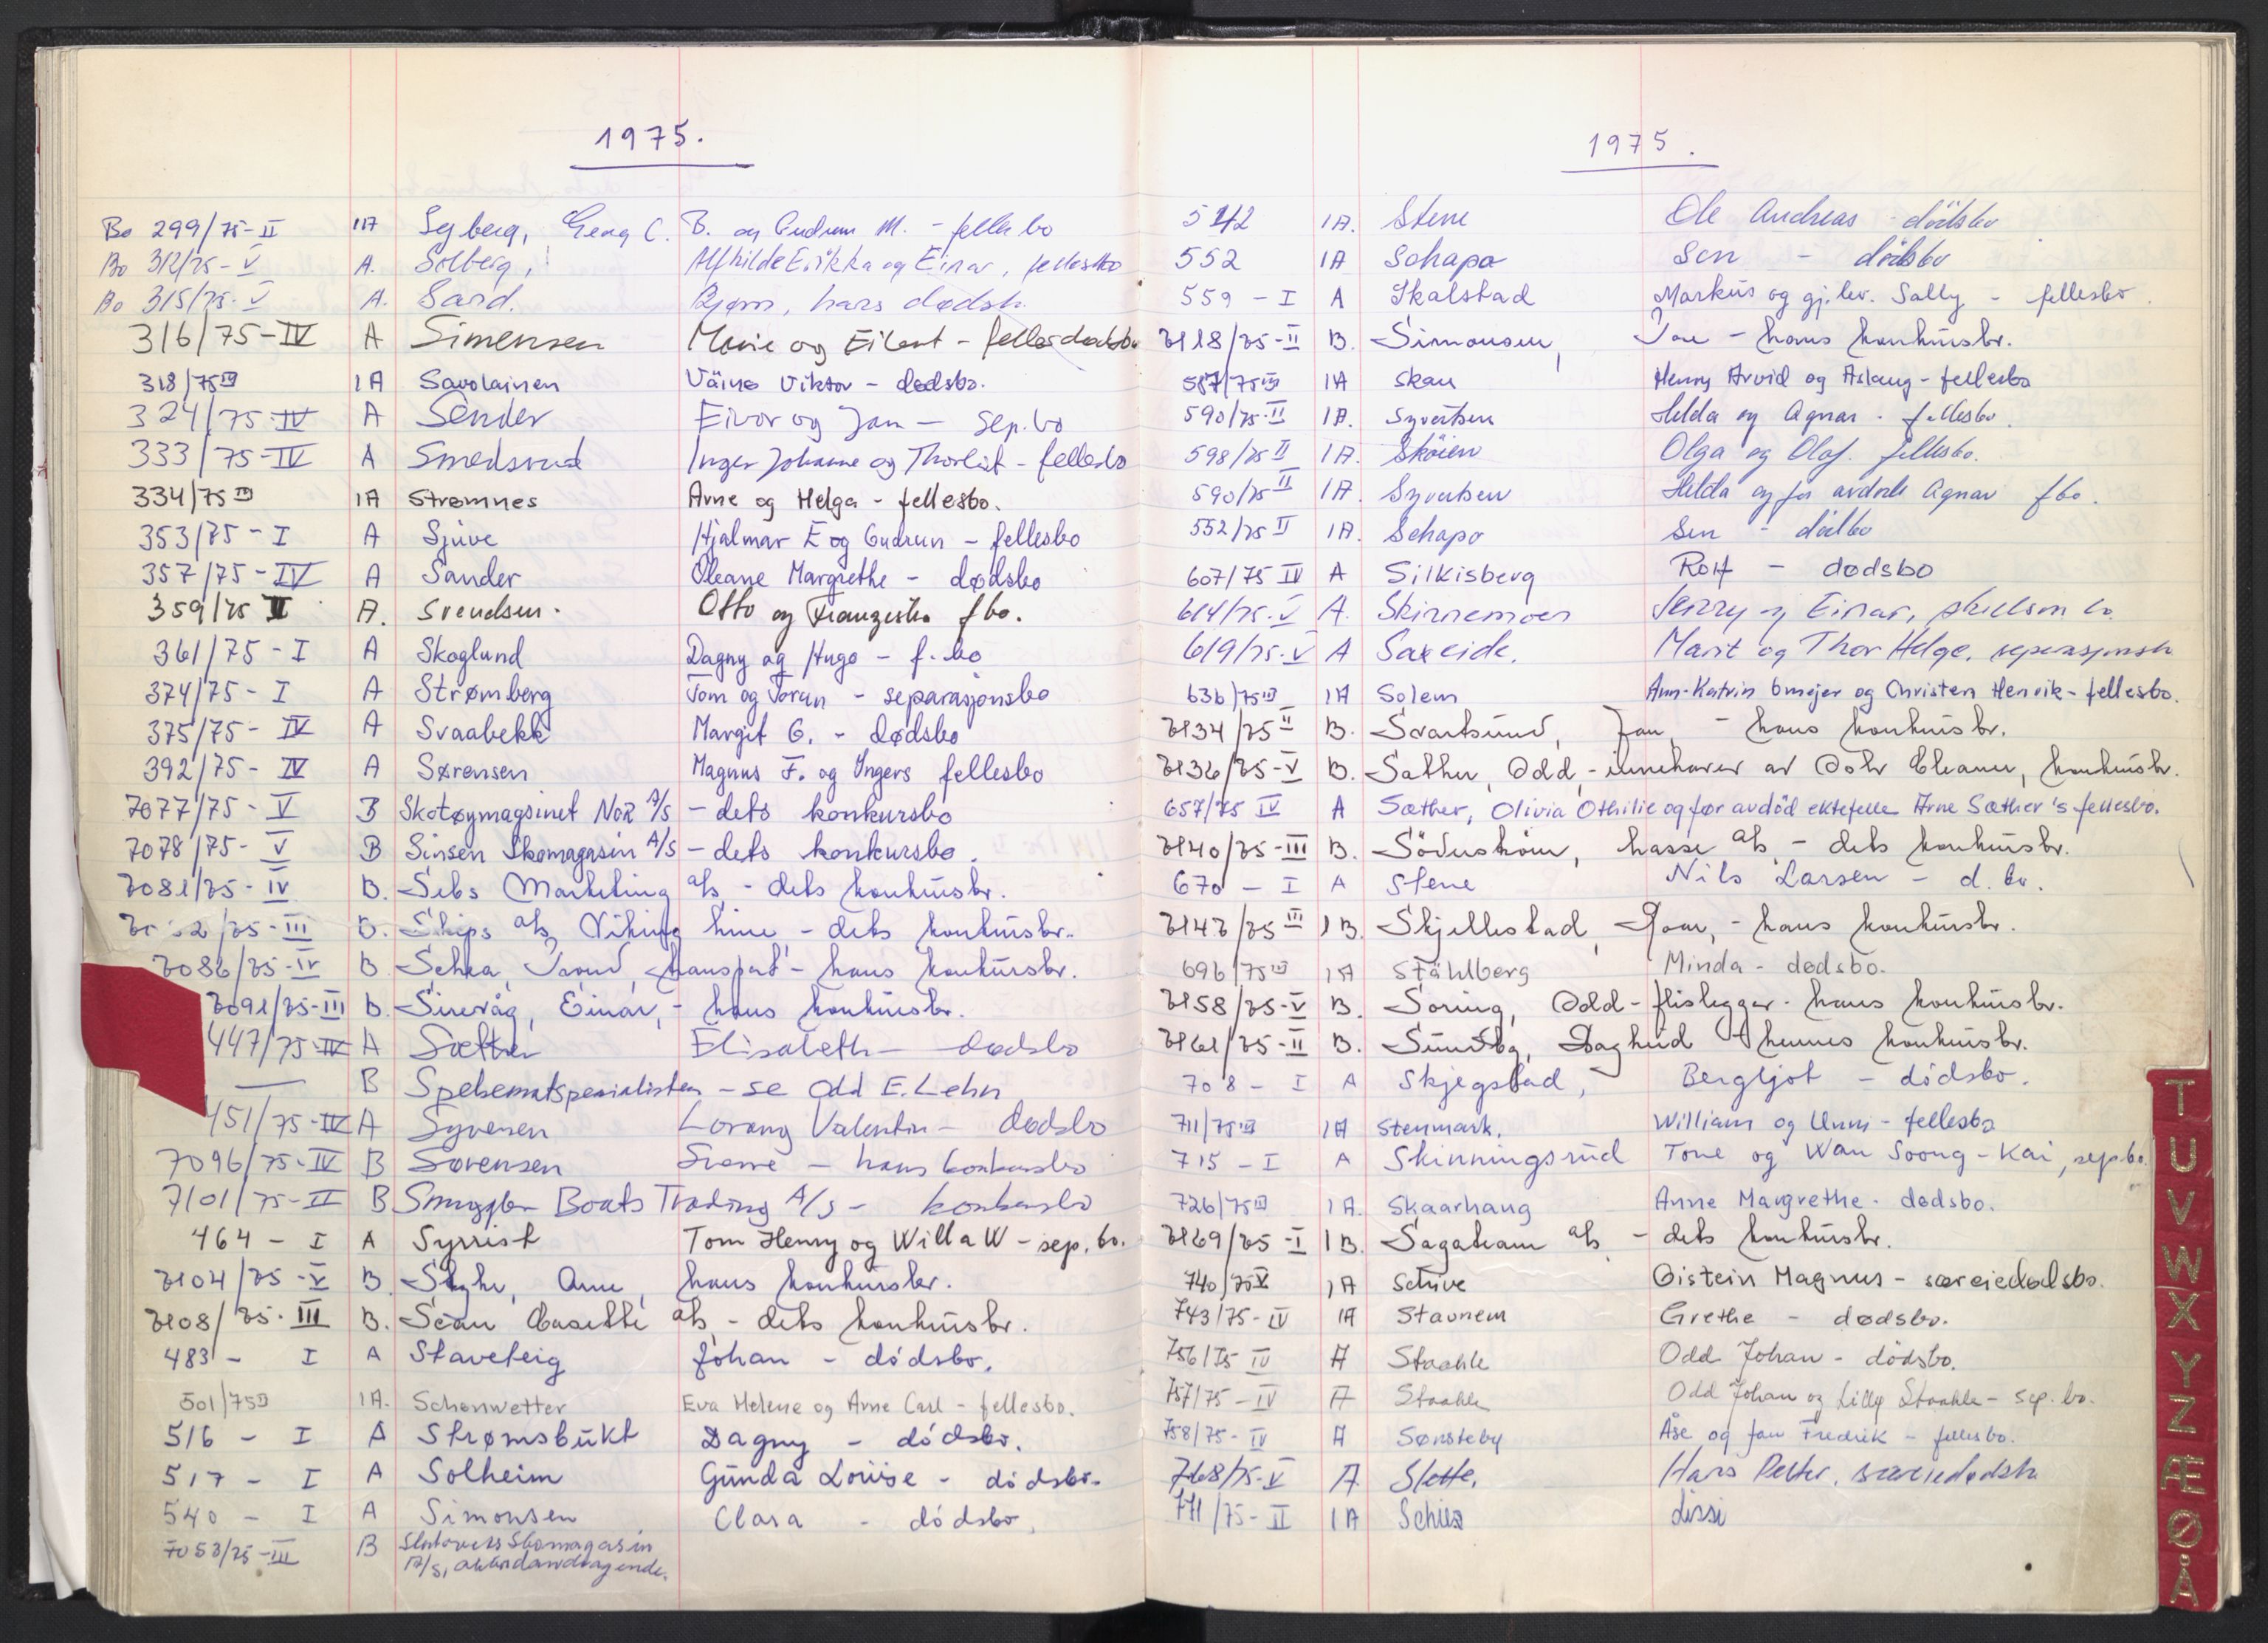 1975.
Bo 299/75-II IA Syberg, Georg C. B. og Gudrun M. - felles bo
Bo 312/75-V A. Solberg, Alfhilde Erikka og Einar, fellesbo
Bo 315/75-V A. Sand. Bjørn, hans dødsb.
316/75-IV A Simensen Marie og Eilert - felles dødsbo
318/75 III IA Savolainen Väinö Viktor - dødsbo.
324/75-IV A Sender Eivor og Jan - sep.bo
333/75-IV A Smedsrud Inger Johanne og Thorleif - fellesbo
334/75 III IA Strømnes Arne og Helga - fellesbo.
353/75-I A Sjuve Hjalmar E og Gudrun - fellesbo
357/75-IV A Sander Oleane Margrethe - dødsbo
359/75 II A. Svendsen. Otto og Franziska fbo.
361/75-I A Skoglund Dagny og Hugo - f.bo
374/75-I A Strømberg Tom og Jorun - separasjonsbo
375/75-IV A Svaabekk Margit G. - dødsbo
392/75-IV A Sørensen Magnus F. og Yngers fellesbo
7077/75-V B Skotøymagsinet NoR A/S - dets konkursbo
7078/75-V B Sinsen Skomagasin A/S - dets konkursbo.
7081/75-IV B. Sebs Marketing a/s - dets konkursbo.
/75-III B. Ships a/s, Viking Line - dets konkursbo.
7086/75-IV B. Sehra, transport - hans konkursbo.
7091/75-III B. Sirevåg, Einar, - hans konkursbo.
447/75-IV A Sæther Elisabeth - dødsbo
— B Spelsematspesialisten - se Odd E. Lehn
451/75-IV A Syversen Lorang Valentin - dødsbo
7096/75-IV B Sørensen Sverre - hans konkursbo
7101/75-II B Smuggler Boats Trading A/S - konkursbo
464 - I A Syrrist Tom Henry og Willa W - sep.bo.
7104/75-V B. Styhr, Arne, hans konkursbo.
7108/75-III B. Scan Casette a/s - dets konkursbo.
483 - I A Staveteig Johan - dødsbo.
501/75 III IA. Schønwetter Eva Helene og Arne Carl - fellesbo.
516 - I A Strømsbukt Dagny - dødsbo.
517 - I A Solheim Gunda Louise - dødsbo.
540 - I A Simonsen Clara - dødsbo.
7053/75-III B Slotsverts Skomagasin
A/S, akkordandragende.
1975.
542 IA. Stene Ole Andreas - dødsbo
552 IA Schapo Sen - dødsbo
559 - I A Skalstad Markus og gj.lev. Sally - fellesbo.
7118/75-II B. Simonsen, Jan - hans konkursbo.
587/75 III IA Skau Henry Arvid og Aslaug - fellesbo
590/75-II IA. Syvertsen Hilda og Agnar - fellesbo.
598/75 II IA. Skøien Olga og Olaf. fellesbo.
590/75 II IA. Syvertsen Hilda og før avdøde Agnar fbo.
552/75 II IA. Schapo Sen - dødbo
607/75 IV A Silkisberg Rolf - dødsbo
614/75-V A. Skirnemoen Jenny og Einar, skillsm.bo.
619/75-V A Saxeide. Marit og Thor Helge, separasjonsb.
636/75 III IA Solem Ann-Katrin Omejer og Christen Henrik - fellesbo.
7134/75-II B. Svartsund, Jan, - hans konkursbo.
7136/75-V B. Sæther, Odd - innehaver av Oslo Cleaner, konkursbo.
657/75 IV A Sæther, Olivia Othilie og før avdød ektefelle Arne Sæther's fellesbo.
7140/75-III B. Söderström, Lasse a/s - dets konkursbo.
670 - I A Stene Nils Larsen - d.bo.
7147/75 III IB. Skjellestad, Roar, - hans konkursbo.
696/75 III IA Ståhlberg Minda - dødsbo.
7158/75-V B. Soring, Odd - flislegger - hans konkursbo.
7161/75-II B. Sundby, Daghild - hennes konkursbo.
708 - I A Skjegstad, Bergljot - dødsbo.
711/75 III IA Stenmark. William og Unni - fellesbo
715 - I A Skinningsrud Tone og Wan Soong-Kai, sepbo.
726/75 III IA. Skaarhaug Anne Margrethe - dødsbo.
7169/75-I IB. Sagateam a/s - dets konkursbo.
740/75 V IA Schive Øistein Magnus - særeiedødsbo.
743/75-IV IA Stavnem Grethe - dødsbo.
756/75 IV A Staahle Odd Johan - dødsbo.
757/75-IV A Staahle Odd Johan og Lilly Staahle - sep.bo.
758/75-IV A Sønsteby Åse og Jan Fredrik - fellesbo.
768/75-V A Slette, Hans Petter, særeiedødsb.
771/75-II IA Schiøz Lissi
T
U
V
W
X
Y
Z
Æ
Ø
Å